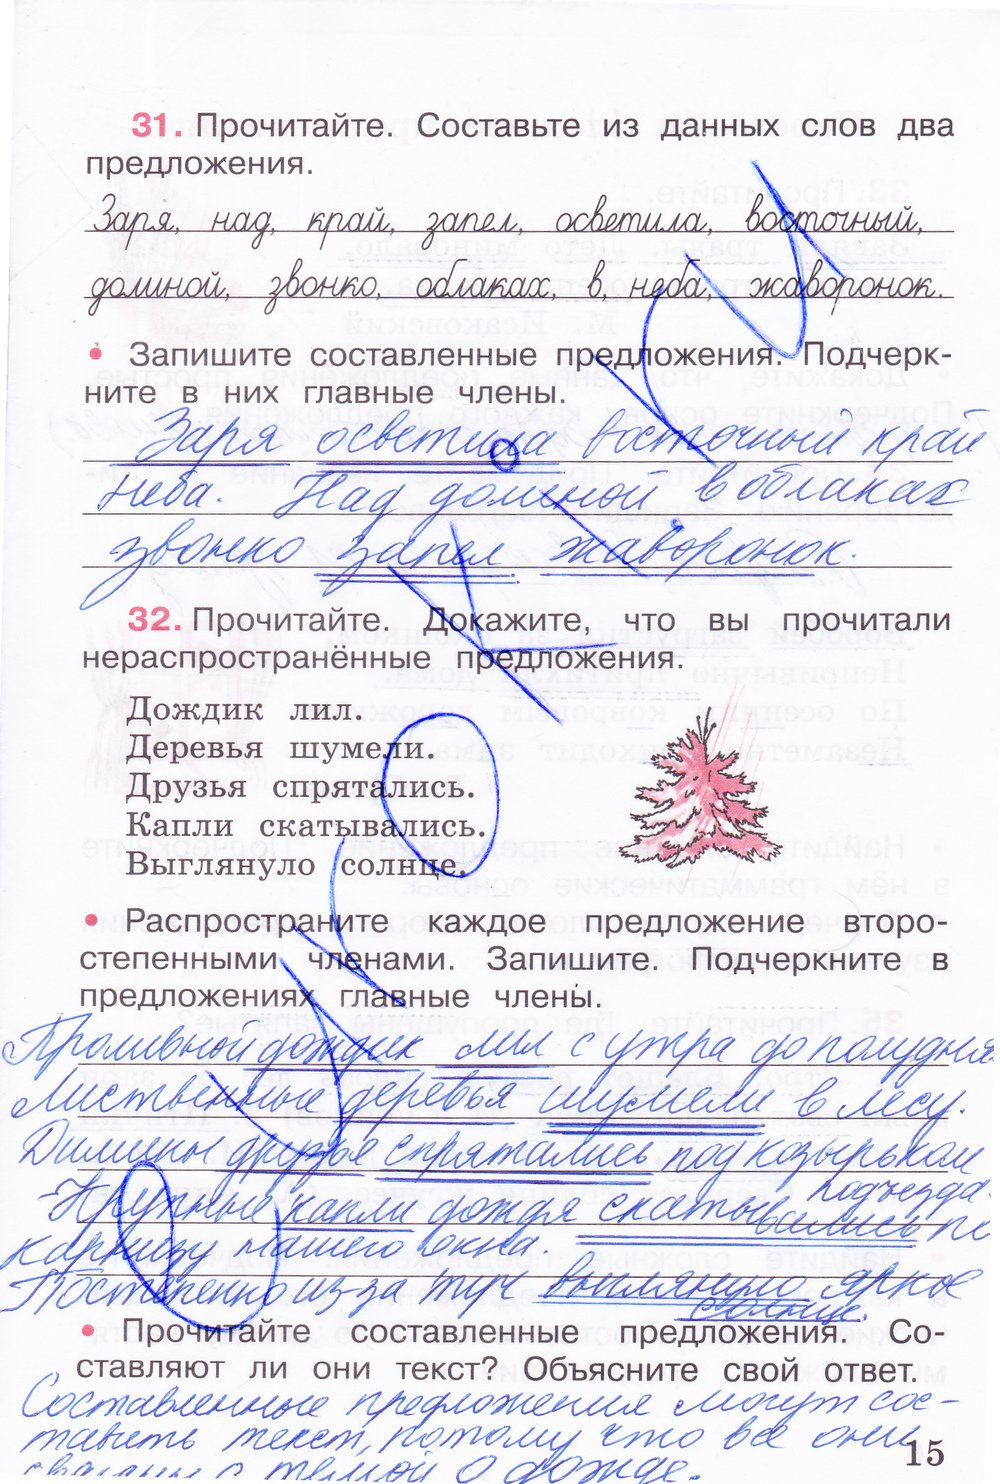 31. Прочитайте. Составьте из данных слов два
предложения.
Заря, над, край, запел, осветила, восточный,
долиной, звонко, облаках, в, неба, жаворонок.
• Запишите составленные предложения. Подчерк-
ните в них главные члены.
Заря осветила восточный край
неба. Над долиной в облаках
звонко запел жаворонок.
32. Прочитайте. Докажите, что вы прочитали
нераспространённые предложения.
Дождик лил.
Деревья шумели.
Друзья спрятались.
Капли скатывались.
Выглянуло солнце.
• Распространите каждое предложение второ-
степенными членами. Запишите. Подчеркните в
предложениях главные члены.
Проливной дождик лил с утра до полудня.
Лиственные деревья шумели в лесу.
друзья спрятались под козырьком
подъезда.
Крупные капли дождя скатывались по
карнизу нашего окна.
Постепенно из за туч выглянуло яркое
солнце.
• Прочитайте составленные предложения. Со-
ставляют ли они текст? Объясните свой ответ.
Составленные предложения могут сос-
тавить текст, потому что все они
связаны с темой о дожде.
15